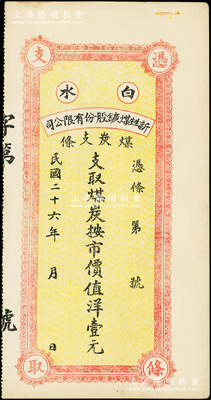 上海陽明拍賣有限公司
憑
支
取
條
白水
新生煤礦股份有限公司
煤炭支條
憑條第 號
支取煤炭按市價值洋壹元
民國二十六年 月 日
字第 號